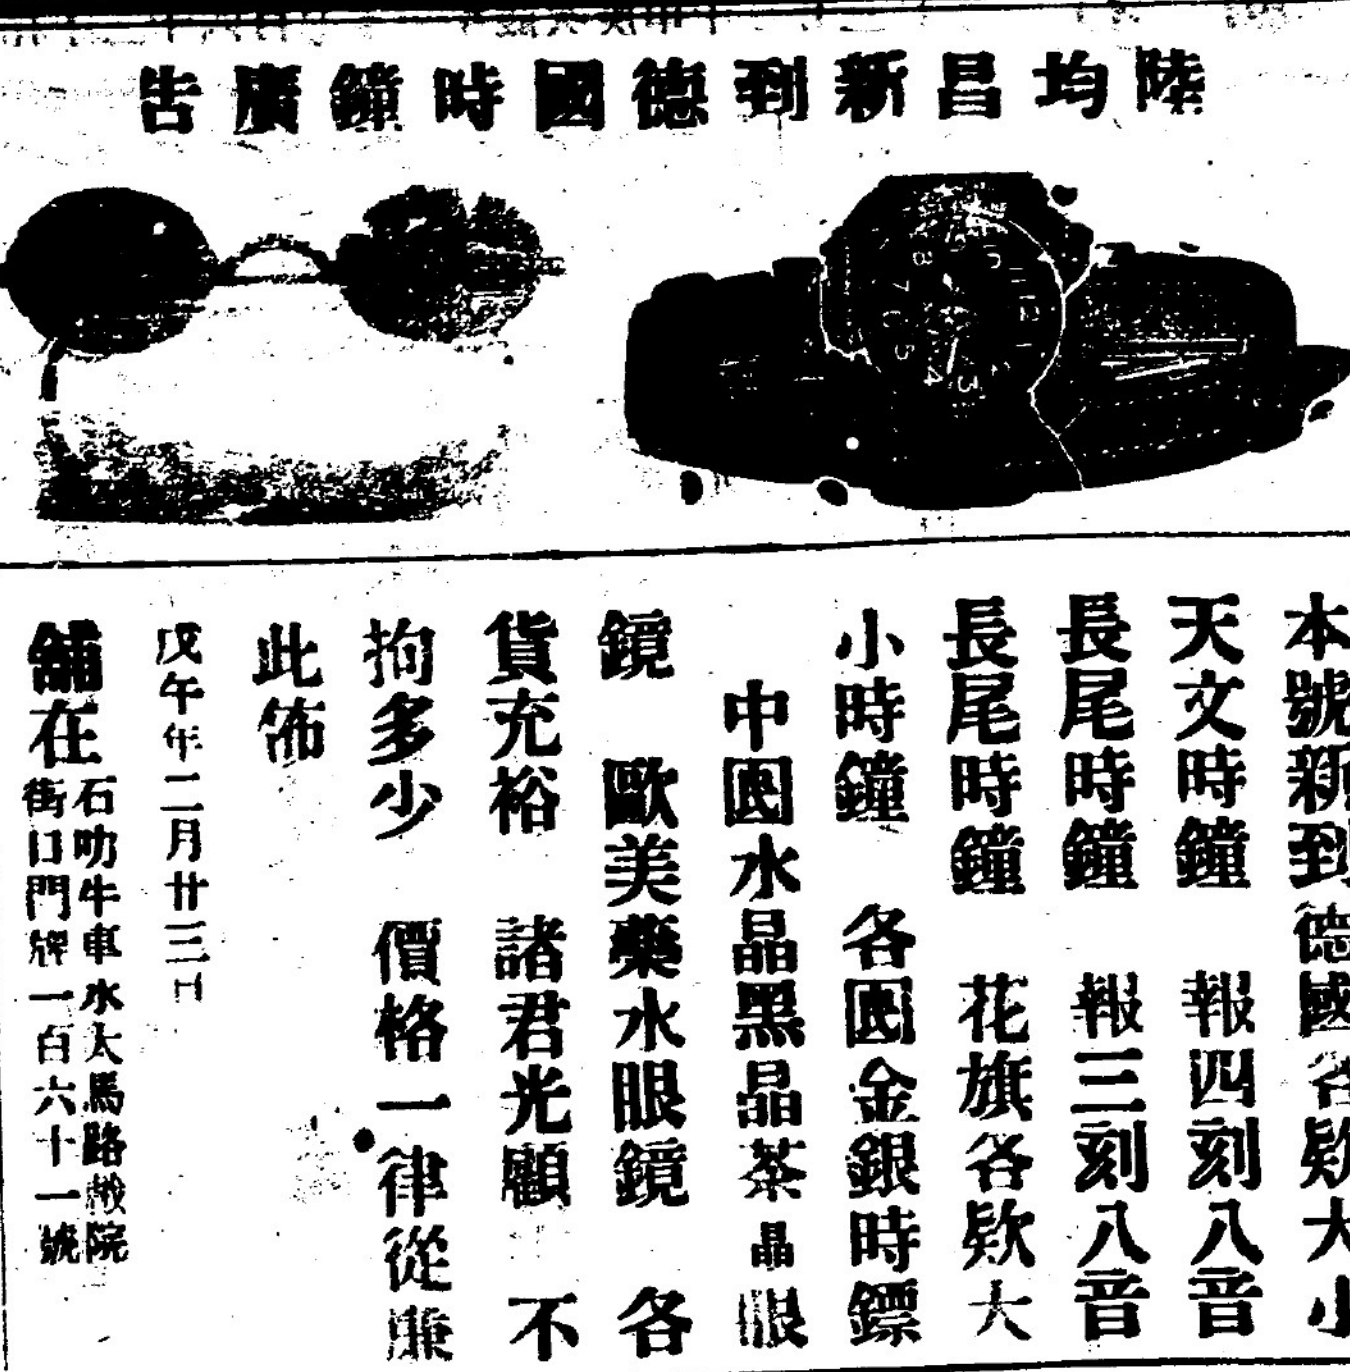 陸均昌新到德國時鐘廣告
本號新到德國各欵大小
天文時鐘 報四刻八音
長尾時鐘 報三刻八音
長尾時鐘 花旗各欵大
小時鐘 各國金銀時鏢
中國水晶黑晶茶晶眼
鏡 歐美藥水眼鏡 各
貨充裕 諸君光顧 不
拘多少 價格一律從廉
此佈
戊午年二月廿三日
舖在
石叻牛車水大馬路戲院
街口門牌一百六十一號